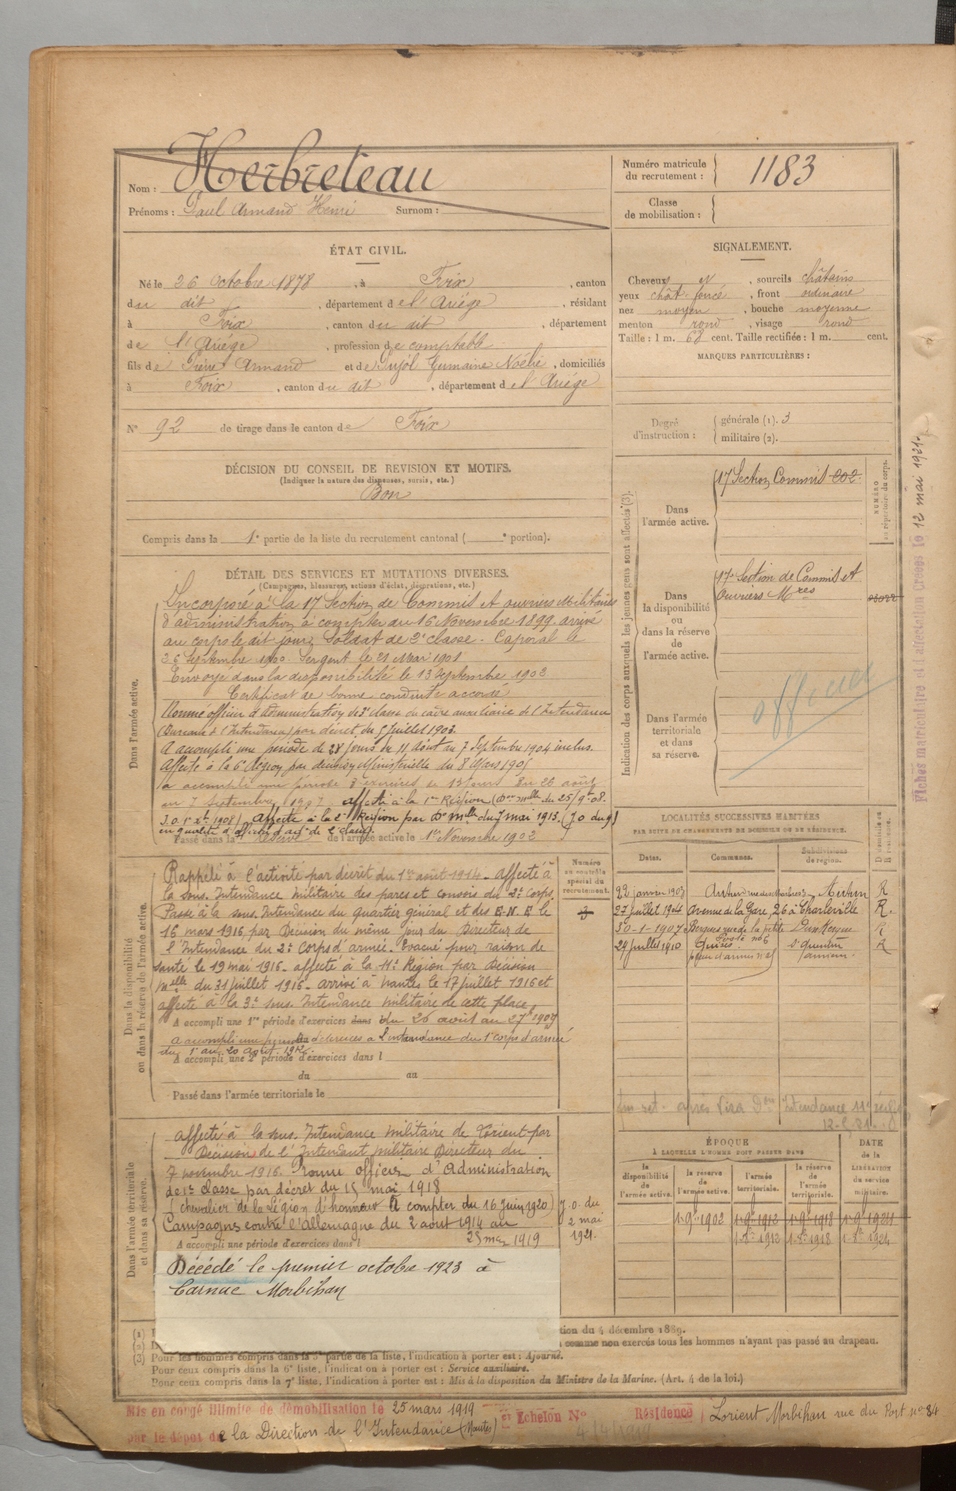 Nom : Herbreteau
Prénoms : Paul Armand Henri Surnom :
Numéro matricule du recrutement : 1183
Classe de mobilisation :
ÉTAT CIVIL.
Né le 26 octobre 1878, à Foix, canton
du dit, département de l'Ariège, résidant
à Foix, canton du dit, département
de l'Ariège, profession de comptable
fils de Pierre Armand et de Pujol Germaine Noélie, domiciliés
à Foix, canton du dit, département de l'Ariège
N° 92 de tirage dans le canton de Foix
SIGNALEMENT.
Cheveux et, sourcils châtains
yeux chât. foncé, front ordinaire
nez moyen, bouche moyenne
menton rond, visage rond
Taille : 1 m. 68 cent. Taille rectifiée : 1 m. cent.
MARQUES PARTICULIÈRES :
Degré d'instruction : générale (1). 3
militaire (2).
DÉCISION DU CONSEIL DE REVISION ET MOTIFS.
(Indiquer la nature des dispenses, sursis, etc.)
Bon
Compris dans la 1e partie de la liste du recrutement cantonal ( e portion).
DÉTAIL DES SERVICES ET MUTATIONS DIVERSES.
(Campagnes, blessures, actions d'éclat, décorations, etc.)
Dans l'armée active.
Incorporé à la 17 Section de Commis et ouvriers Militaires
d'administration à compter du 16 Novembre 1899, arrivé
au corps le dit jour, soldat de 2e classe. Caporal le
26 Septembre 1900. Sergent le 21 Mai 1901
Envoyé dans la disponibilité le 13 Septembre 1902
Certificat de bonne conduite accordé
Nommé officier d'administration de 3e classe du cadre auxiliaire de l'Intendance
(Bureaux de l'Intendance) par décret du 5 juillet 1903.
A accompli une période de 28 jours du 11 août au 7 Septembre 1904 inclus.
Affecté à la 6e Région par décision Ministérielle du 8 Mars 1905
a accompli une période d'exercices de 13 jours du 26 août
au 7 Septembre 1907. affecté à la 1ère Région (Don Mlle du 25/9bre 08.
J.O. 1908) Affecté à la 2e Région par Don Mlle du 7 mai 1913. (J.O du 9)
en qualité d'officier d'adon de 2e classe.
Passé dans la réserve de l'armée active le 1er Novembre 1902
Indication des corps auxquels les jeunes gens sont affectés (3).
Dans l'armée active.
17 Section Commis 202
NUMÉRO au répertoire du corps.
Dans la disponibilité ou dans la réserve de l'armée active.
17e Section de Commis et
Ouvriers Mres
Dans l'armée territoriale et dans sa réserve.
officier
Fiches matriculaire et d'affectation Créées le 12 mai 1921.
Dans la disponibilité ou dans la réserve de l'armée active.
Rappelé à l'activité par décret du 1er août 1914. affecté à
la sous. Intendance militaire des parcs et convois du 2e Corps
Passé à la sous. Intendance du quartier général et des E.N.E le
16 mars 1916 par Décision du même jour du Directeur de
l'Intendance du 2e Corps d'armée. Evacué pour raison de
santé le 19 mai 1916. affecté à la 11e Région par Décision
Melle du 31 juillet 1916. arrivé à Nantes le 17 juillet 1916 et
affecté à la 3e sous. Intendance militaire de cette place.
A accompli une 1re période d'exercices dans du 26 août au 27 1907
a accompli une période d'exercices à l'intendance du 1er corps d'armée
du 1er au 20 août 1912.
A accompli une 2e période d'exercices dans l
du au
Passé dans l'armée territoriale le
Numéro au contrôle spécial du recrutement.
LOCALITÉS SUCCESSIVES HABITÉES
PAR SUITE DE CHANGEMENTS DE DOMICILE OU DE RÉSIDENCE.
Dates. Communes. Subdivisions de région.
22 janvier 1903 R
27 juillet 1904 Avenue de la Gare, 26 à Charleville R.
30-1-1907 Bergues rue de la petite Dunkerque
École no 6
29 juillet 1910 Guise St Quentin R
Intendance 11e
ÉPOQUE
À LAQUELLE L'HOMME DOIT PASSER DANS
la disponibilité de l'armée active. la réserve de l'armée active. l'armée territoriale. la réserve de l'armée territoriale.
DATE de la LIBÉRATION du service militaire.
1.9bre 1902 1.9bre 1912 1.9bre 1918 1.9bre 1924
1.8bre 1912 1.8bre 1918 1.8bre 1924
Dans l'armée territoriale et dans sa réserve.
affecté à la sous. Intendance militaire de Lorient par
Décision de l'Intendant militaire Directeur du
7 novembre 1916. Promu officier d'Administration
de 1re classe par décret du 15 mai 1918
(Chevalier de la Légion d'honneur à compter du 16 Juin 1920) J.O. du
2 mai
1921.
Campagne contre l'Allemagne du 2 août 1914 au
25 mars 1919
A accompli une période d'exercices dans l
Décédé le premier octobre 1923 à
Carnac Morbihan
tion du 4 décembre 1889.
comme non exercés tous les hommes n'ayant pas passé au drapeau.
Pour les hommes compris dans la 5e partie de la liste, l'indication à porter est : Ajourné.
Pour ceux compris dans la 6e liste, l'indication à porter est : Service auxiliaire.
Pour ceux compris dans la 7e liste, l'indication à porter est : Mis à la disposition du Ministre de la Marine. (Art. 4 de la loi.)
Mis en congé illimité de démobilisation le 25 mars 1919 Echelon N°
par le dépôt de la Direction de l'Intendance (Nantes)
Résidence Lorient Morbihan rue du Port no 84